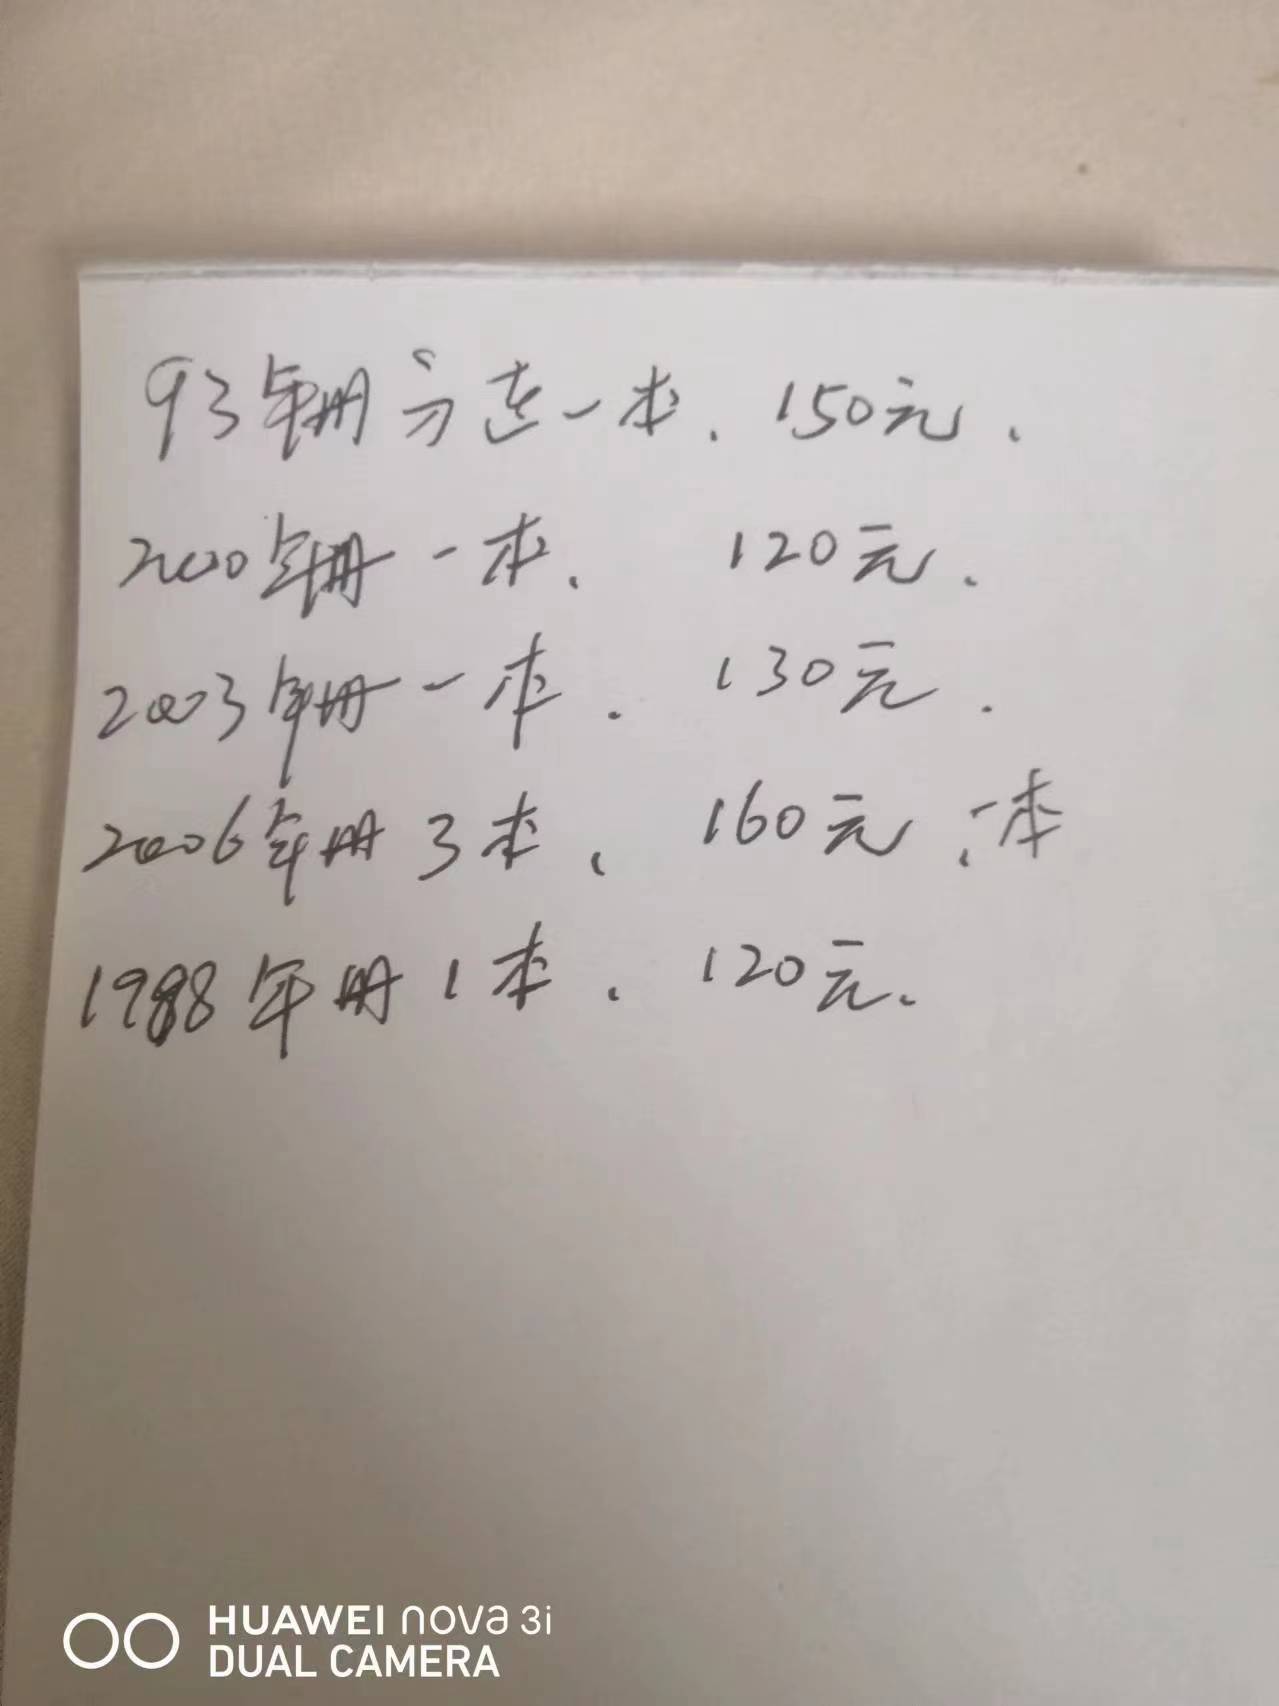 93年册方连一本、150元、
2000年册一本、 120元、
2003年册一本. 130元.
2006年册3本、 160元、一本
1988年册1本、 120元、
HUAWEI nova 3i
DUAL CAMERA